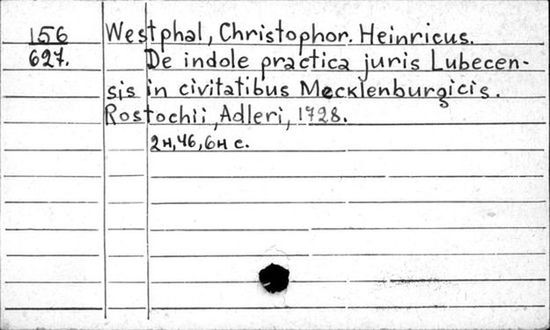 156 Westphal, Christophor. Heinricus.
627. De indole practica juris Lubecen-
sis in civitatibus Mecklenburgicis.
Rostochii, Adleri, 1728.
2н, 46, 6н с.